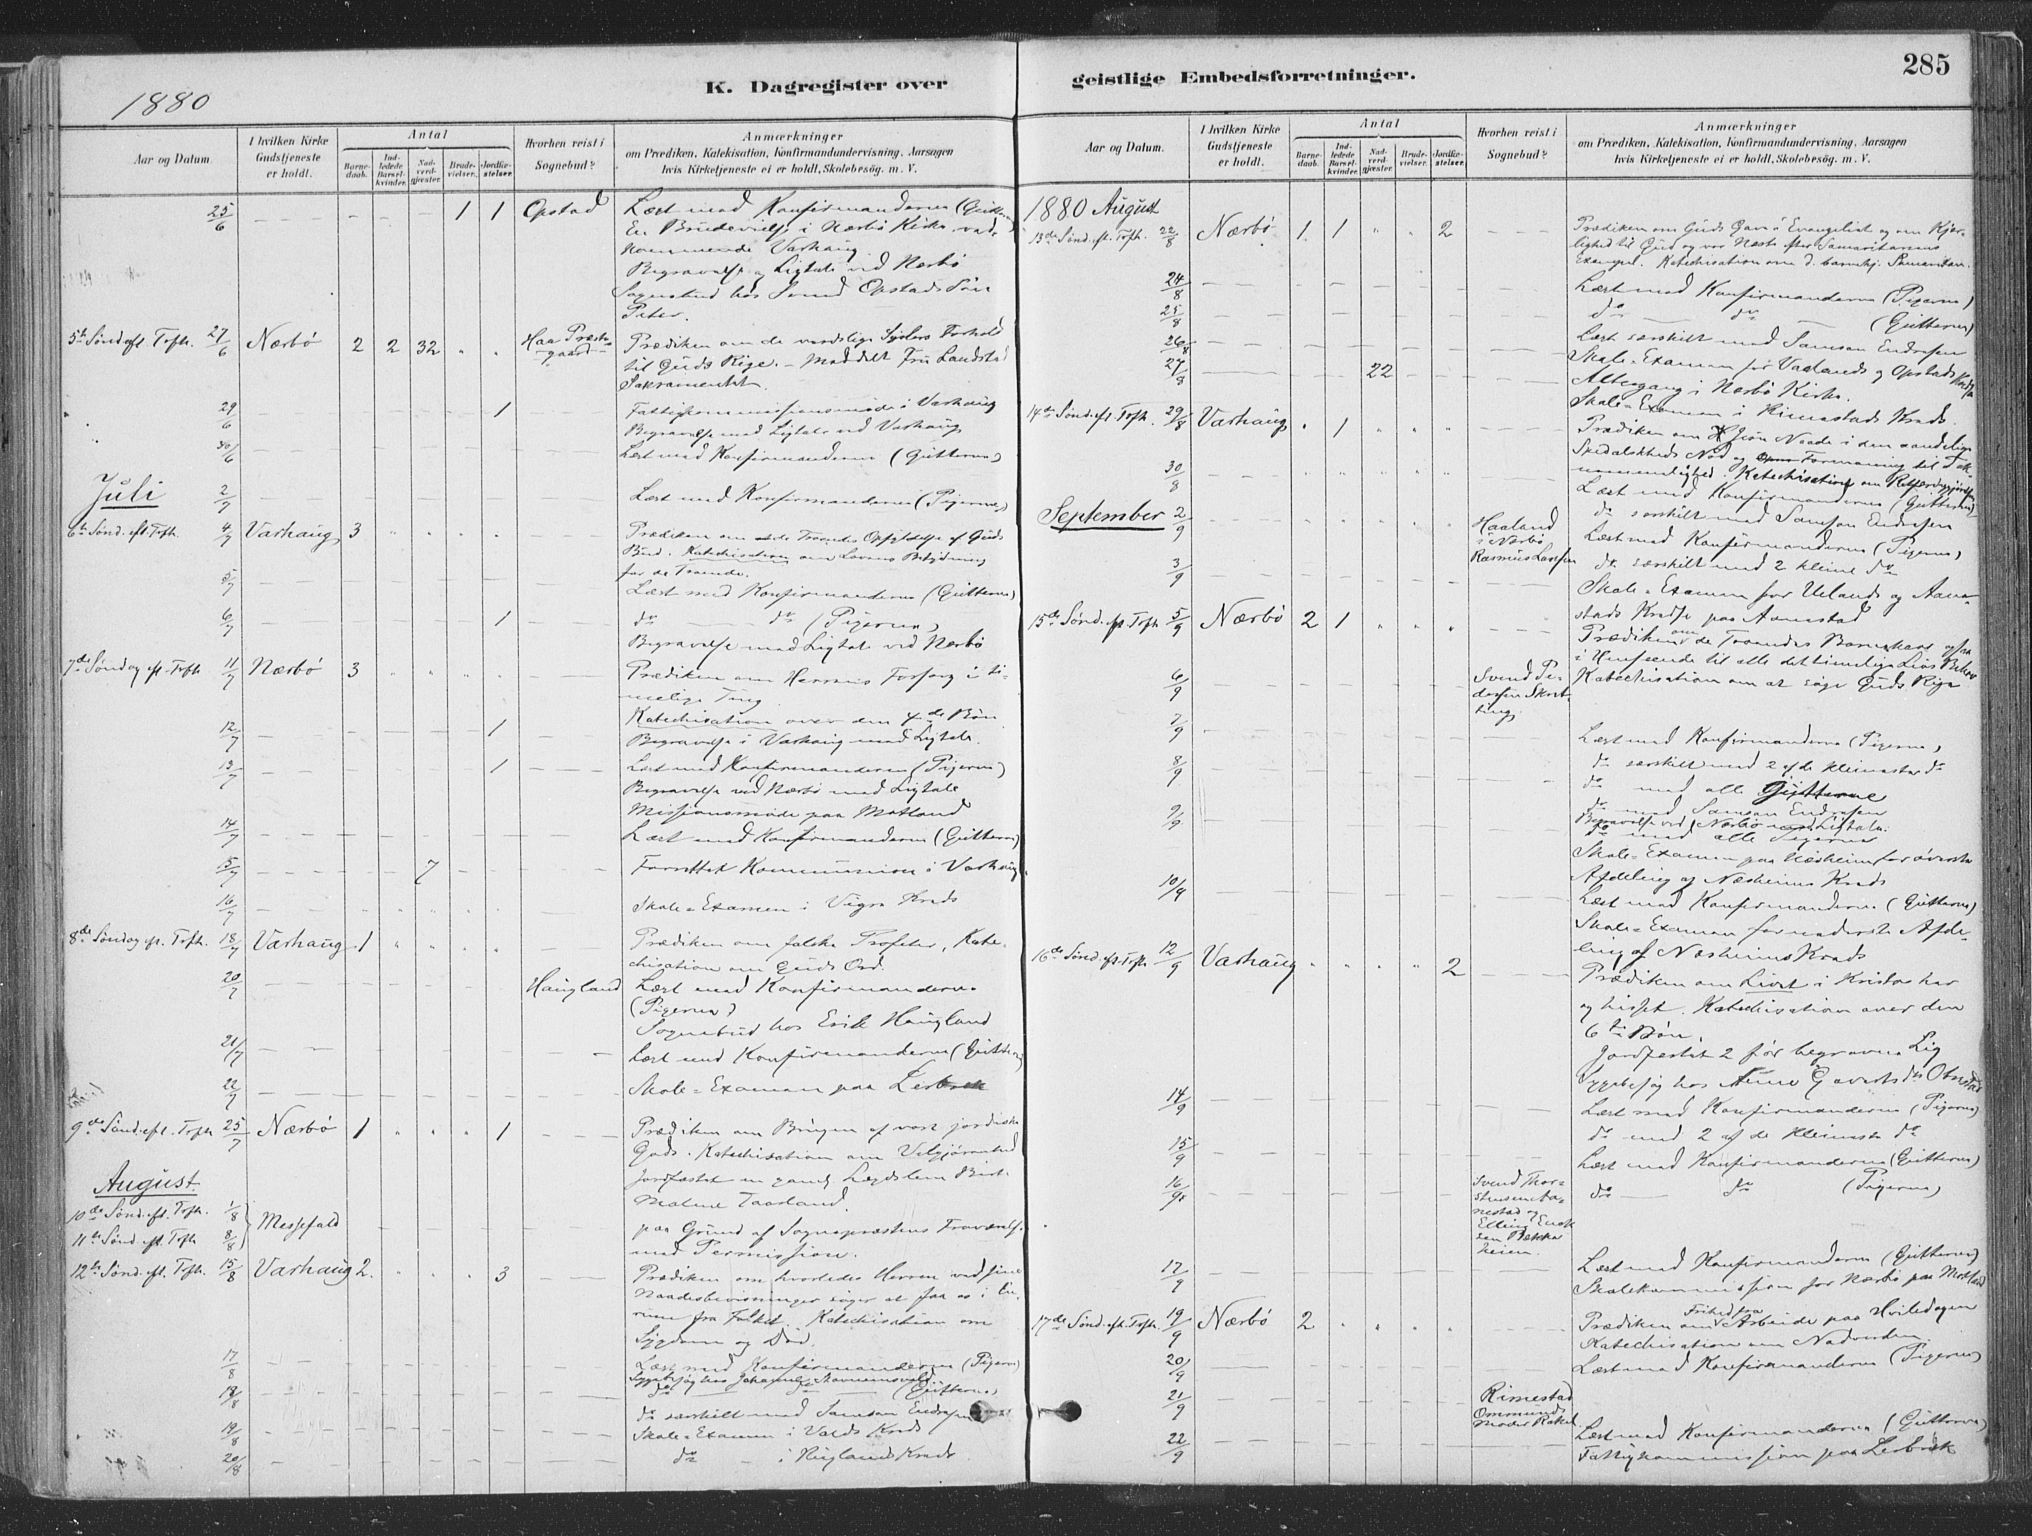 K. Dagregister over geistlige Embedsforretninger.
285
1880
Aar og Datum.
I hvilken Kirke Gudstjeneste er holdt.
Antal
Barnedaab.
Indledede Barselkvinder.
Nadverdgjæster.
Brudevielser.
Jordfæstelser.
Hvorhen reist i Sognebud?
Anmærkninger
om Prædiken, Katekisation, Konfirmandundervisning, Aarsagen
hvis Kirketjeneste ei er holdt, Skolebesøg. m. V.
25/6 1 1 Opstad Læst med Konfirmanderne (Gutterne)
En Brudevielse i Nærbø Kirke, ved-
kommende Varhaug
Begravelse og Ligtale vid Nærbø
Sognebud hos Opstads Søn
Peter.
5te Sønd. eft. Trfh. 27/6 Nærbø 2 2 32 Haa Præste-
gaard
Prædiken om de verdslige Syslers Forhold
til Guds Rige. – Meddelt Fru Landstad
Sakramentet.
29/6 1 Fattigkommissionsmøde i Varhaug
Begravelse med Ligtale ved Varhaug
30/6 Læst med Konfirmanderne (Gutterne)
Juli 2/7 Læst med Konfirmanderne (Pigerne)
6te Sønd. eft. Trfh. 4/7 Varhaug 3 Prædiken om de Troendes Opfyldelse af Guds
Bud. Katechisation om Lovens Betydning
for de Troende.
5/7 Læst med Konfirmanderne (Gutterne)
6/7 1 do do (Pigerne)
Begravelse med Ligtale ved Nærbø
7de Søndag eft. Trfh. 11/7 Nærbø 3 Prædiken om Herrens Forsorg i ti-
melige Ting.
Katechisation over den 4de Bøn
12/7 1 Begravelse i Varhaug med Ligtale.
13/7 1 Læst med Konfirmanderne (Pigerne)
Begravelse ved Nærbø med Ligtale
Missionsmøde paa Motland
14/7 Læst med Konfirmanderne (Gutterne)
15/7 7 Forrettet Kommunion i Varhaug
16/7 Skole-Examen i Vigre Kreds
8de Søndag eft. Trfh. 18/7 Varhaug 1 Prædiken om falske Profeter, Kate-
chisation om Guds Ord.
20/7 Haugland Læst med Konfirmanderne
(Pigerne)
Sognebud hos Erik Haugland
21/7 Læst med Konfirmanderne (Gutterne)
22/7 Skole-Examen paa Lerbræk
9de Sønd. eft. Trfh. 25/7 Nærbø 1 1 Prædiken om Brugen af vort jordiske
Gods. Katechisation om Velgjørenhed
Jordfæstet en gammel Lægdslem Birt
Malene Taarland.
August
10de Sønd. eft. Trfh. 1/8
11te Sønd. eft. Trfh. 8/8 Messefald
paa Grund af Sognepræstens Fraværelse
med Permission.
12te Sønd. eft. Trfh. 15/8 Varhaug 2. 3 Prædiken om hvorledes Herren ved sine
Naadesbevisninger søger at faa os i En-
rum fra Folket. Katechisation om
Sygdom og Død.
17/8 Læst med Konfirmanderne (Pigerne)
Sygebesøg hos Johanne Stavnemsvold
18/8 do do (Gutterne)
do særskilt med Samson Endresen
19/8 Skole-Examen i Valds Kreds
20/8 do i Kuglands Kreds
1880 August
13de Sønd. eft. Trfh. 22/8 Nærbø 1 1 2 Prædiken om Guds Gave i Evangeliet og om Kjær-
lighed til Gud og vor Næste efter Samaritanens
Exempel. Katechisation om d. barmhj. Samaritan.
24/8 Læst med Konfirmanderne (Pigerne)
25/8 do do (Gutterne)
26/8 Læst særskilt med Samson Endresen
27/8 22 Skole-Examen for Vaalands og Opstads Kredse
Altergang i Nærbø Kirke.
Skole-Examen i Rimestads Kreds.
14de Sønd. eft. Trfh. 29/8 Varhaug 1 Prædiken om Naade i den aandelige
Spedalskheds Nød og Formaning til Tak-
nemmelighed. Katechisation om Retfærdiggjørelsen
30/8 Læst med Konfirmanderne (Gutterne)
do særskilt med Samson Endresen
September 2/9 Haaland
i Nærbø
Rasmus Larsen
Læst med Konfirmanderne (Pigerne)
do særskilt med 2 kleine do
3/9 Skole-Examen for Ueland og Aane-
stads Kredse paa Aanestad
15de Sønd. eft. Trfh. 5/9 Nærbø 2 1 Prædiken om de Troendes Barnekaar ogsaa
i Henseende til alle det timelige Livs Behov
Katechisation om at søge Guds Rige
6/9 Svend Pe-
dersen Skret-
ting.
7/9 Læst med Konfirmanderne (Pigerne)
do særskilt med 2 af de kleineste do
8/9 do med alle Gutterne
do med Samson Endresen
Begravelse ved Nærbø med Ligtale.
9/9 do med alle Pigerne
Skole-Examen paa Næsheim for øverste
Afdeling af Næsheims Kreds
10/9 Læst med Konfirmanderne (Gutterne)
Skole-Examen for nederste Afde-
ling af Næsheims Kreds
16de Sønd. eft. Trfh. 12/9 Varhaug 2 Prædiken om Livet i Kristo her
og hisset. Katechisation over den
6te Bøn.
Jordfæstet 2 før begravne Lig
Sygebesøg hos
14/9 Læst med Konfirmanderne (Pigerne)
do med 2 af de kleineste do
15/9 Læst med Konfirmanderne (Gutterne)
16/9 Svend Thor-
stensen Aa-
nestad og
Elling Erik-
sen Bække-
heien.
do do (Pigerne)
17/9 Læst med Konfirmanderne (Gutterne)
Skolekommission for Nærbø paa Motland
17de Sønd. eft. Trfh. 19/9 Nærbø 2 Prædiken om Frihed fra Arbeide paa Hviledagen
Katechisation om Nadverden
20/9 Læst med Konfirmanderne (Pigerne)
21/9 Rimestad
Ommunds
Moder Rakel
Læst med Konfirmanderne (Gutterne)
22/9 Fattigkommission paa Lerbræk